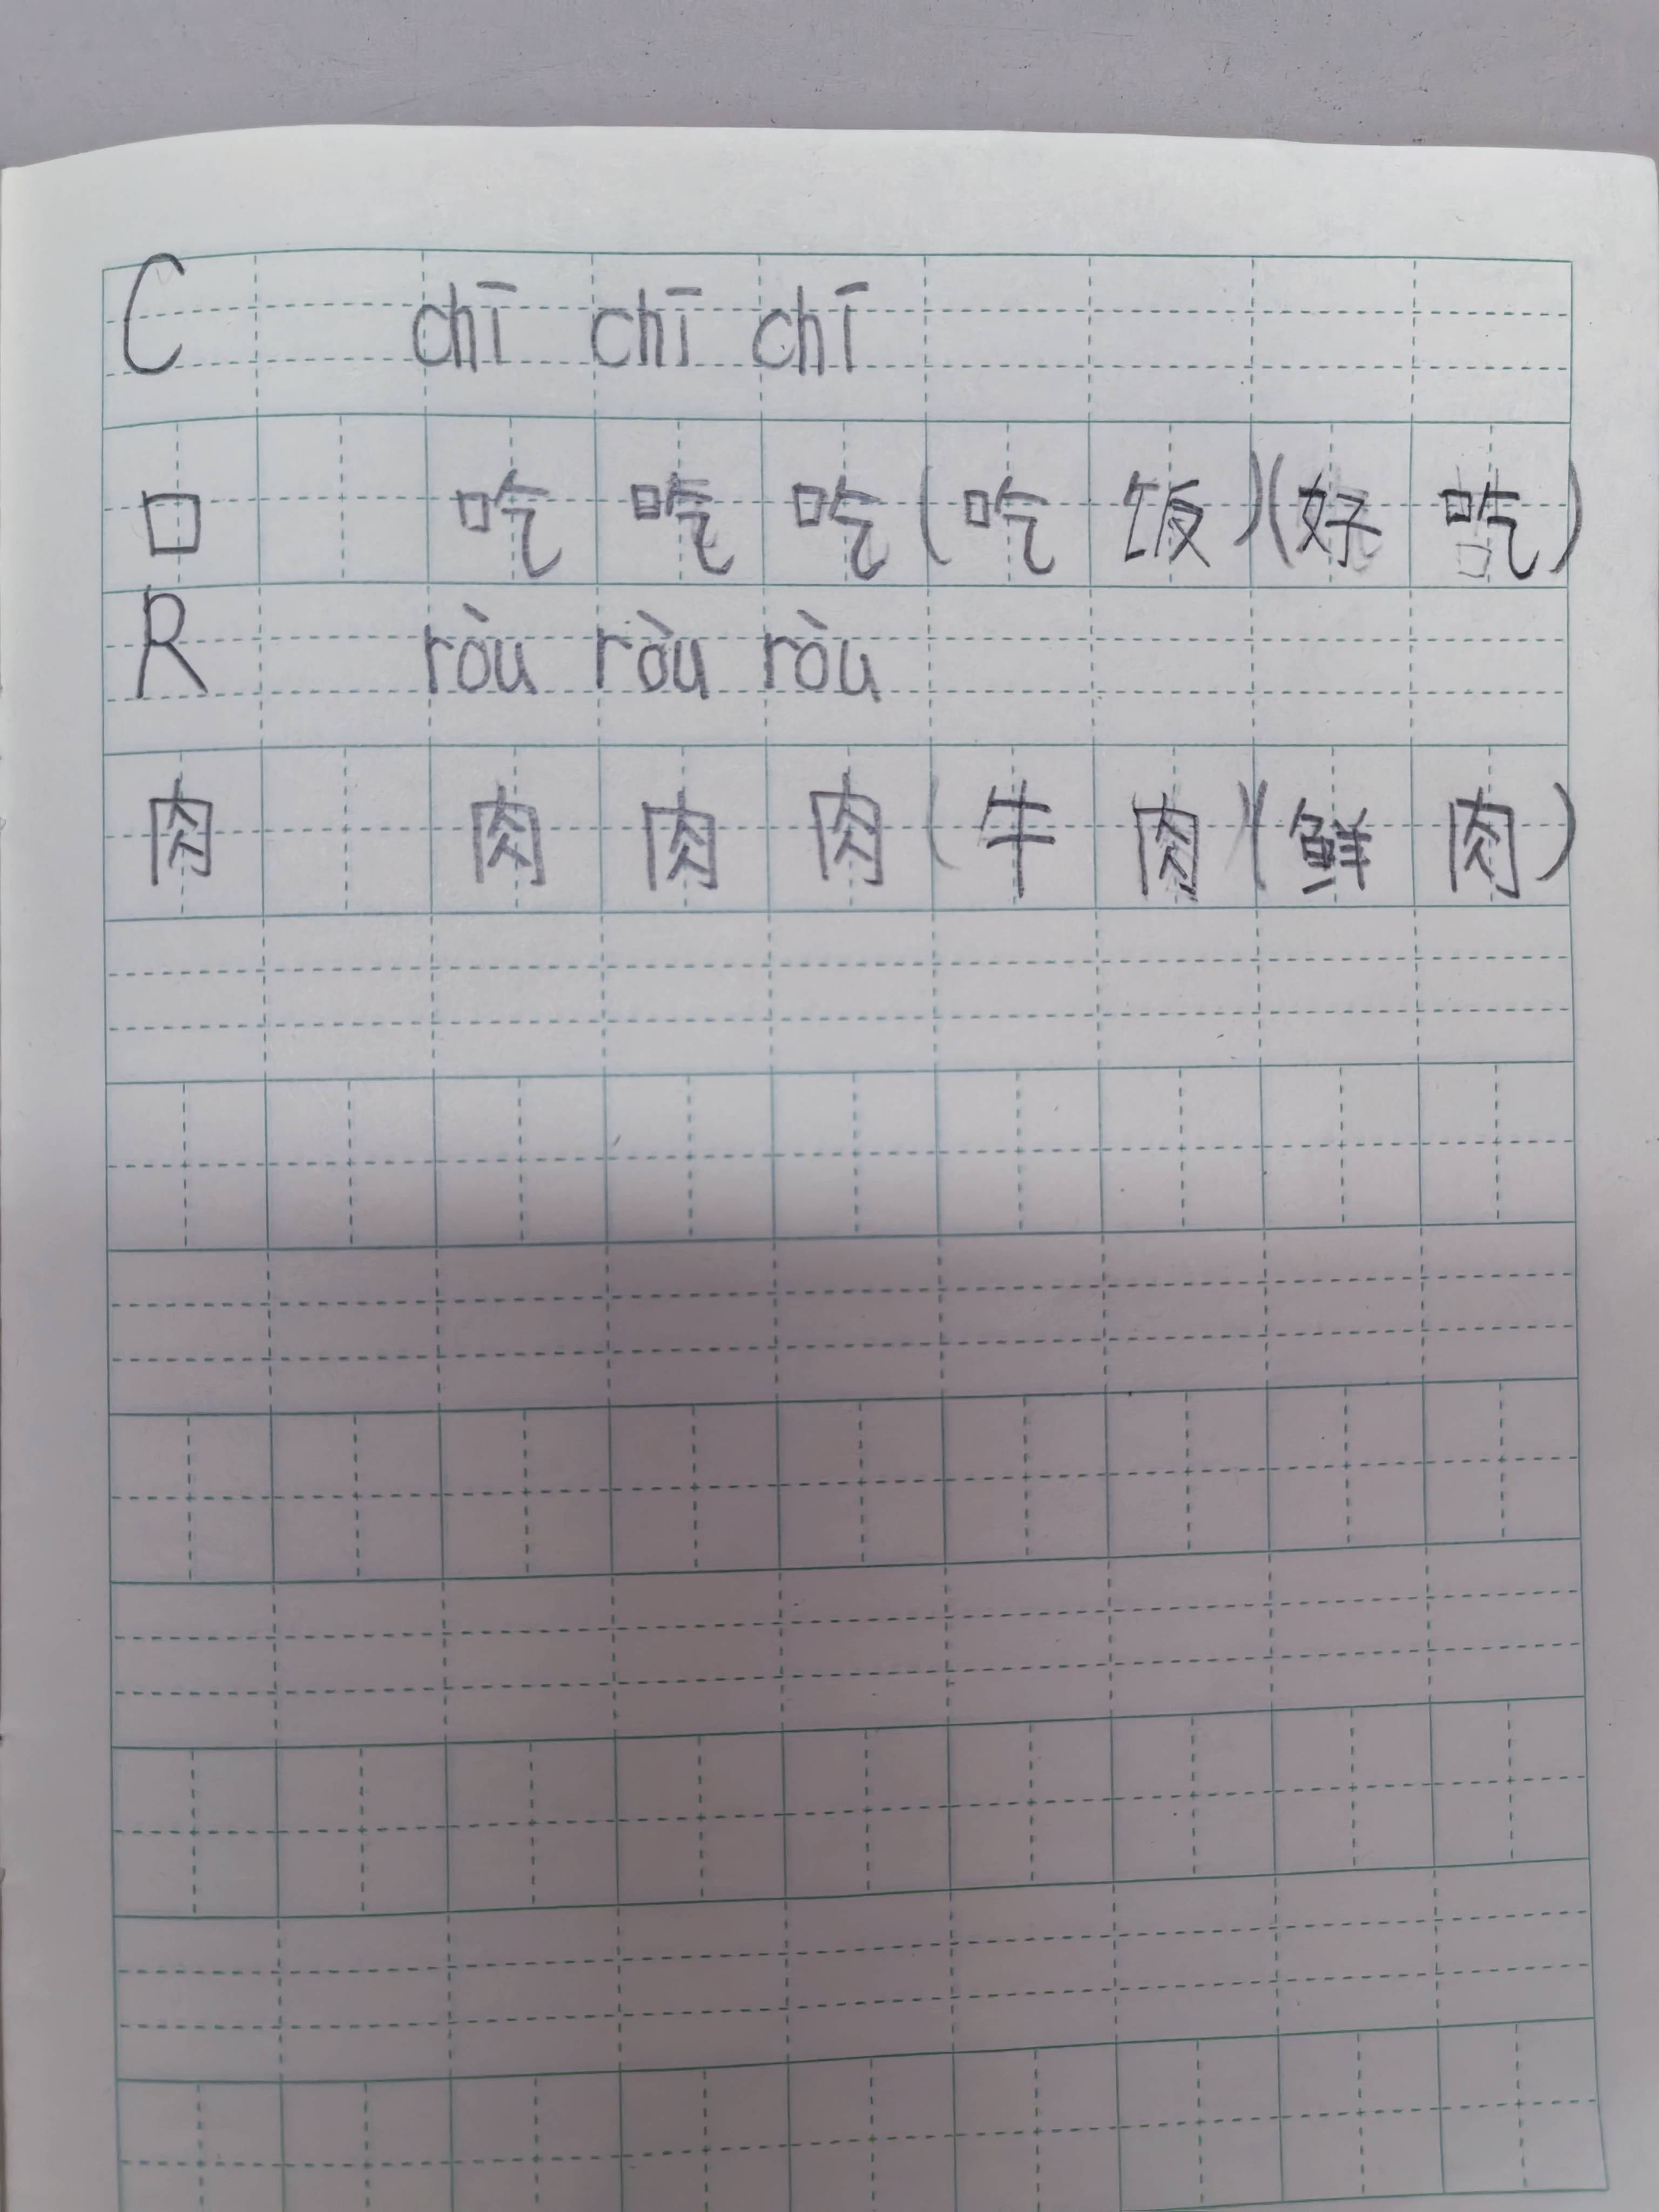 C chī chī chī
口 吃 吃 吃 (吃 饭)(好 吃)
R ròu ròu ròu
肉 肉 肉 肉 (牛 肉)(鲜 肉)